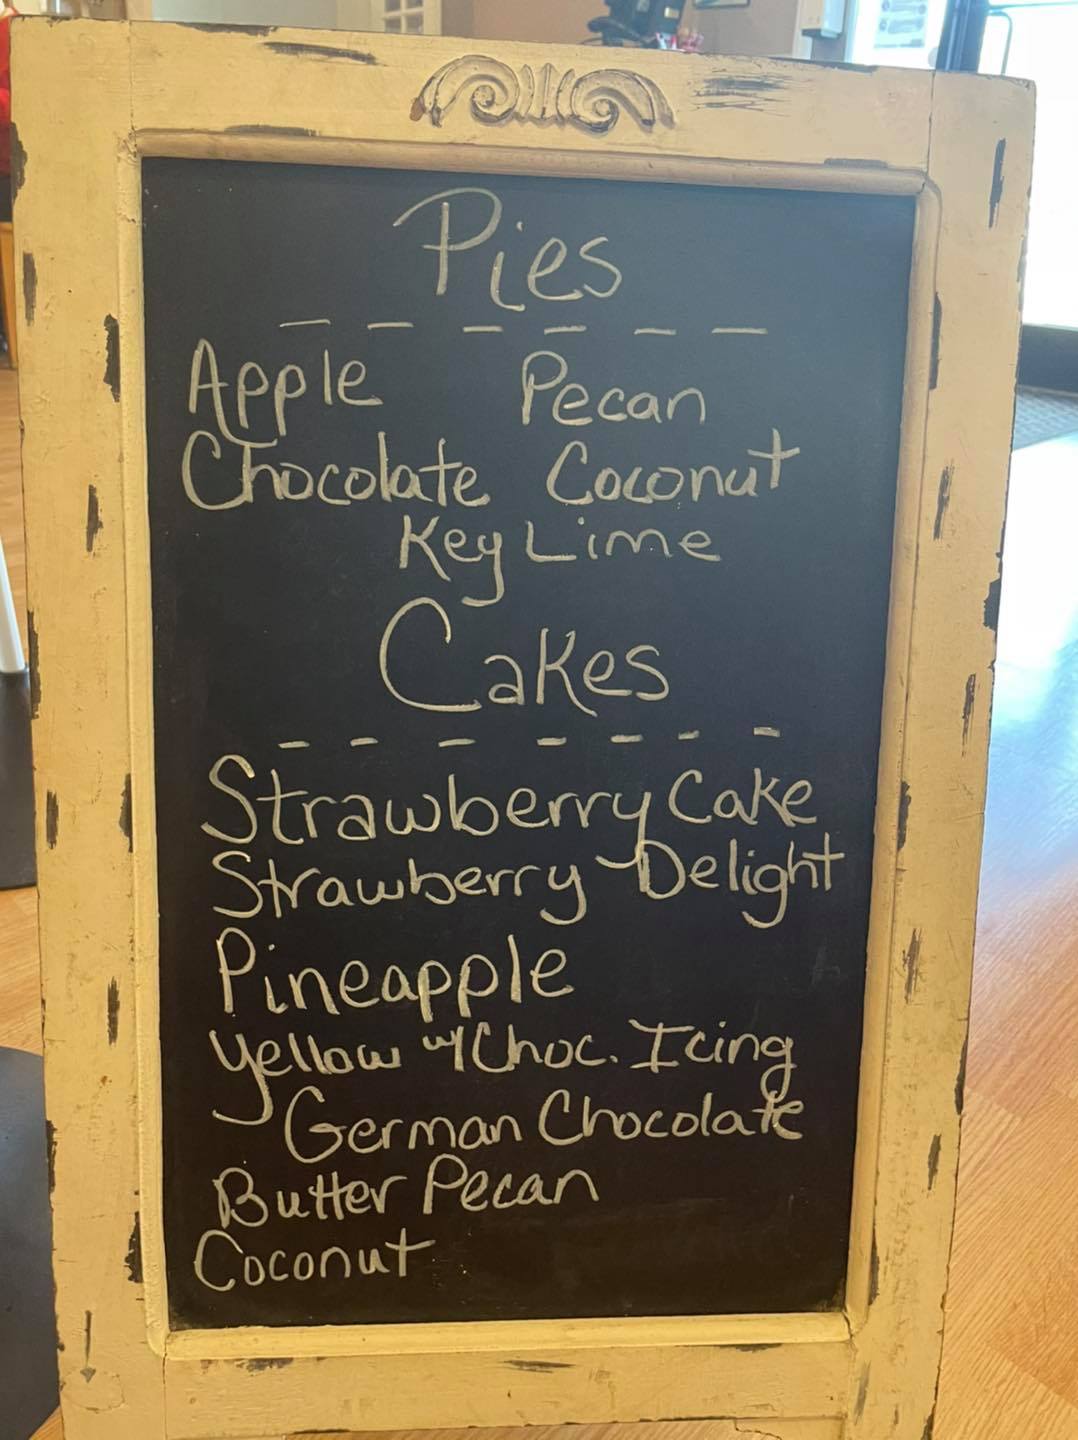 Pies
Apple Pecan
Chocolate Coconut
Key Lime
Cakes
Strawberry Cake
Strawberry Delight
Pineapple
Yellow w/ Choc. Icing
German Chocolate
Butter Pecan
Coconut